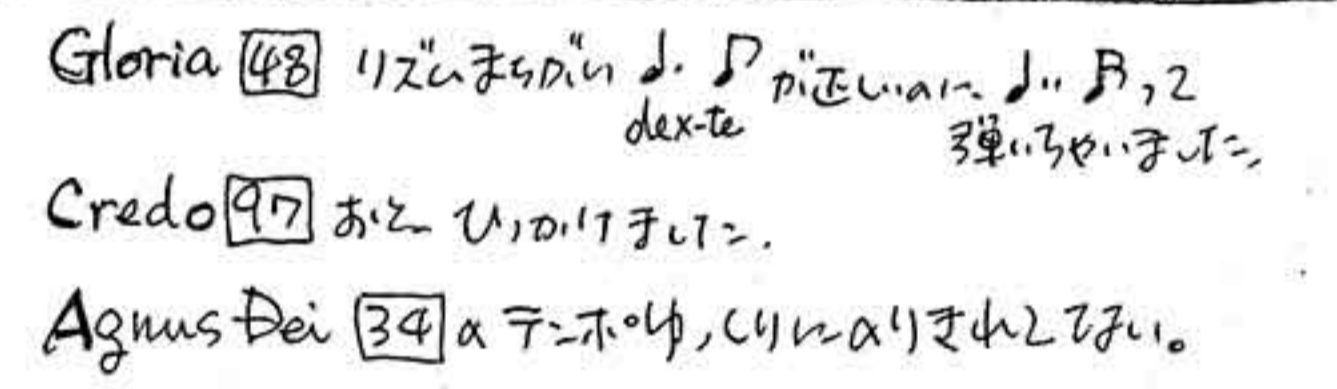 Gloria 48 リズムまちがい ♩. ♪ が正しいのに ♩.. ♬って
dex-te 弾いちゃいました。
Credo 97 おとひっかけました.
Agnus Dei 34 のテンポゆっくりにのりきれてない。